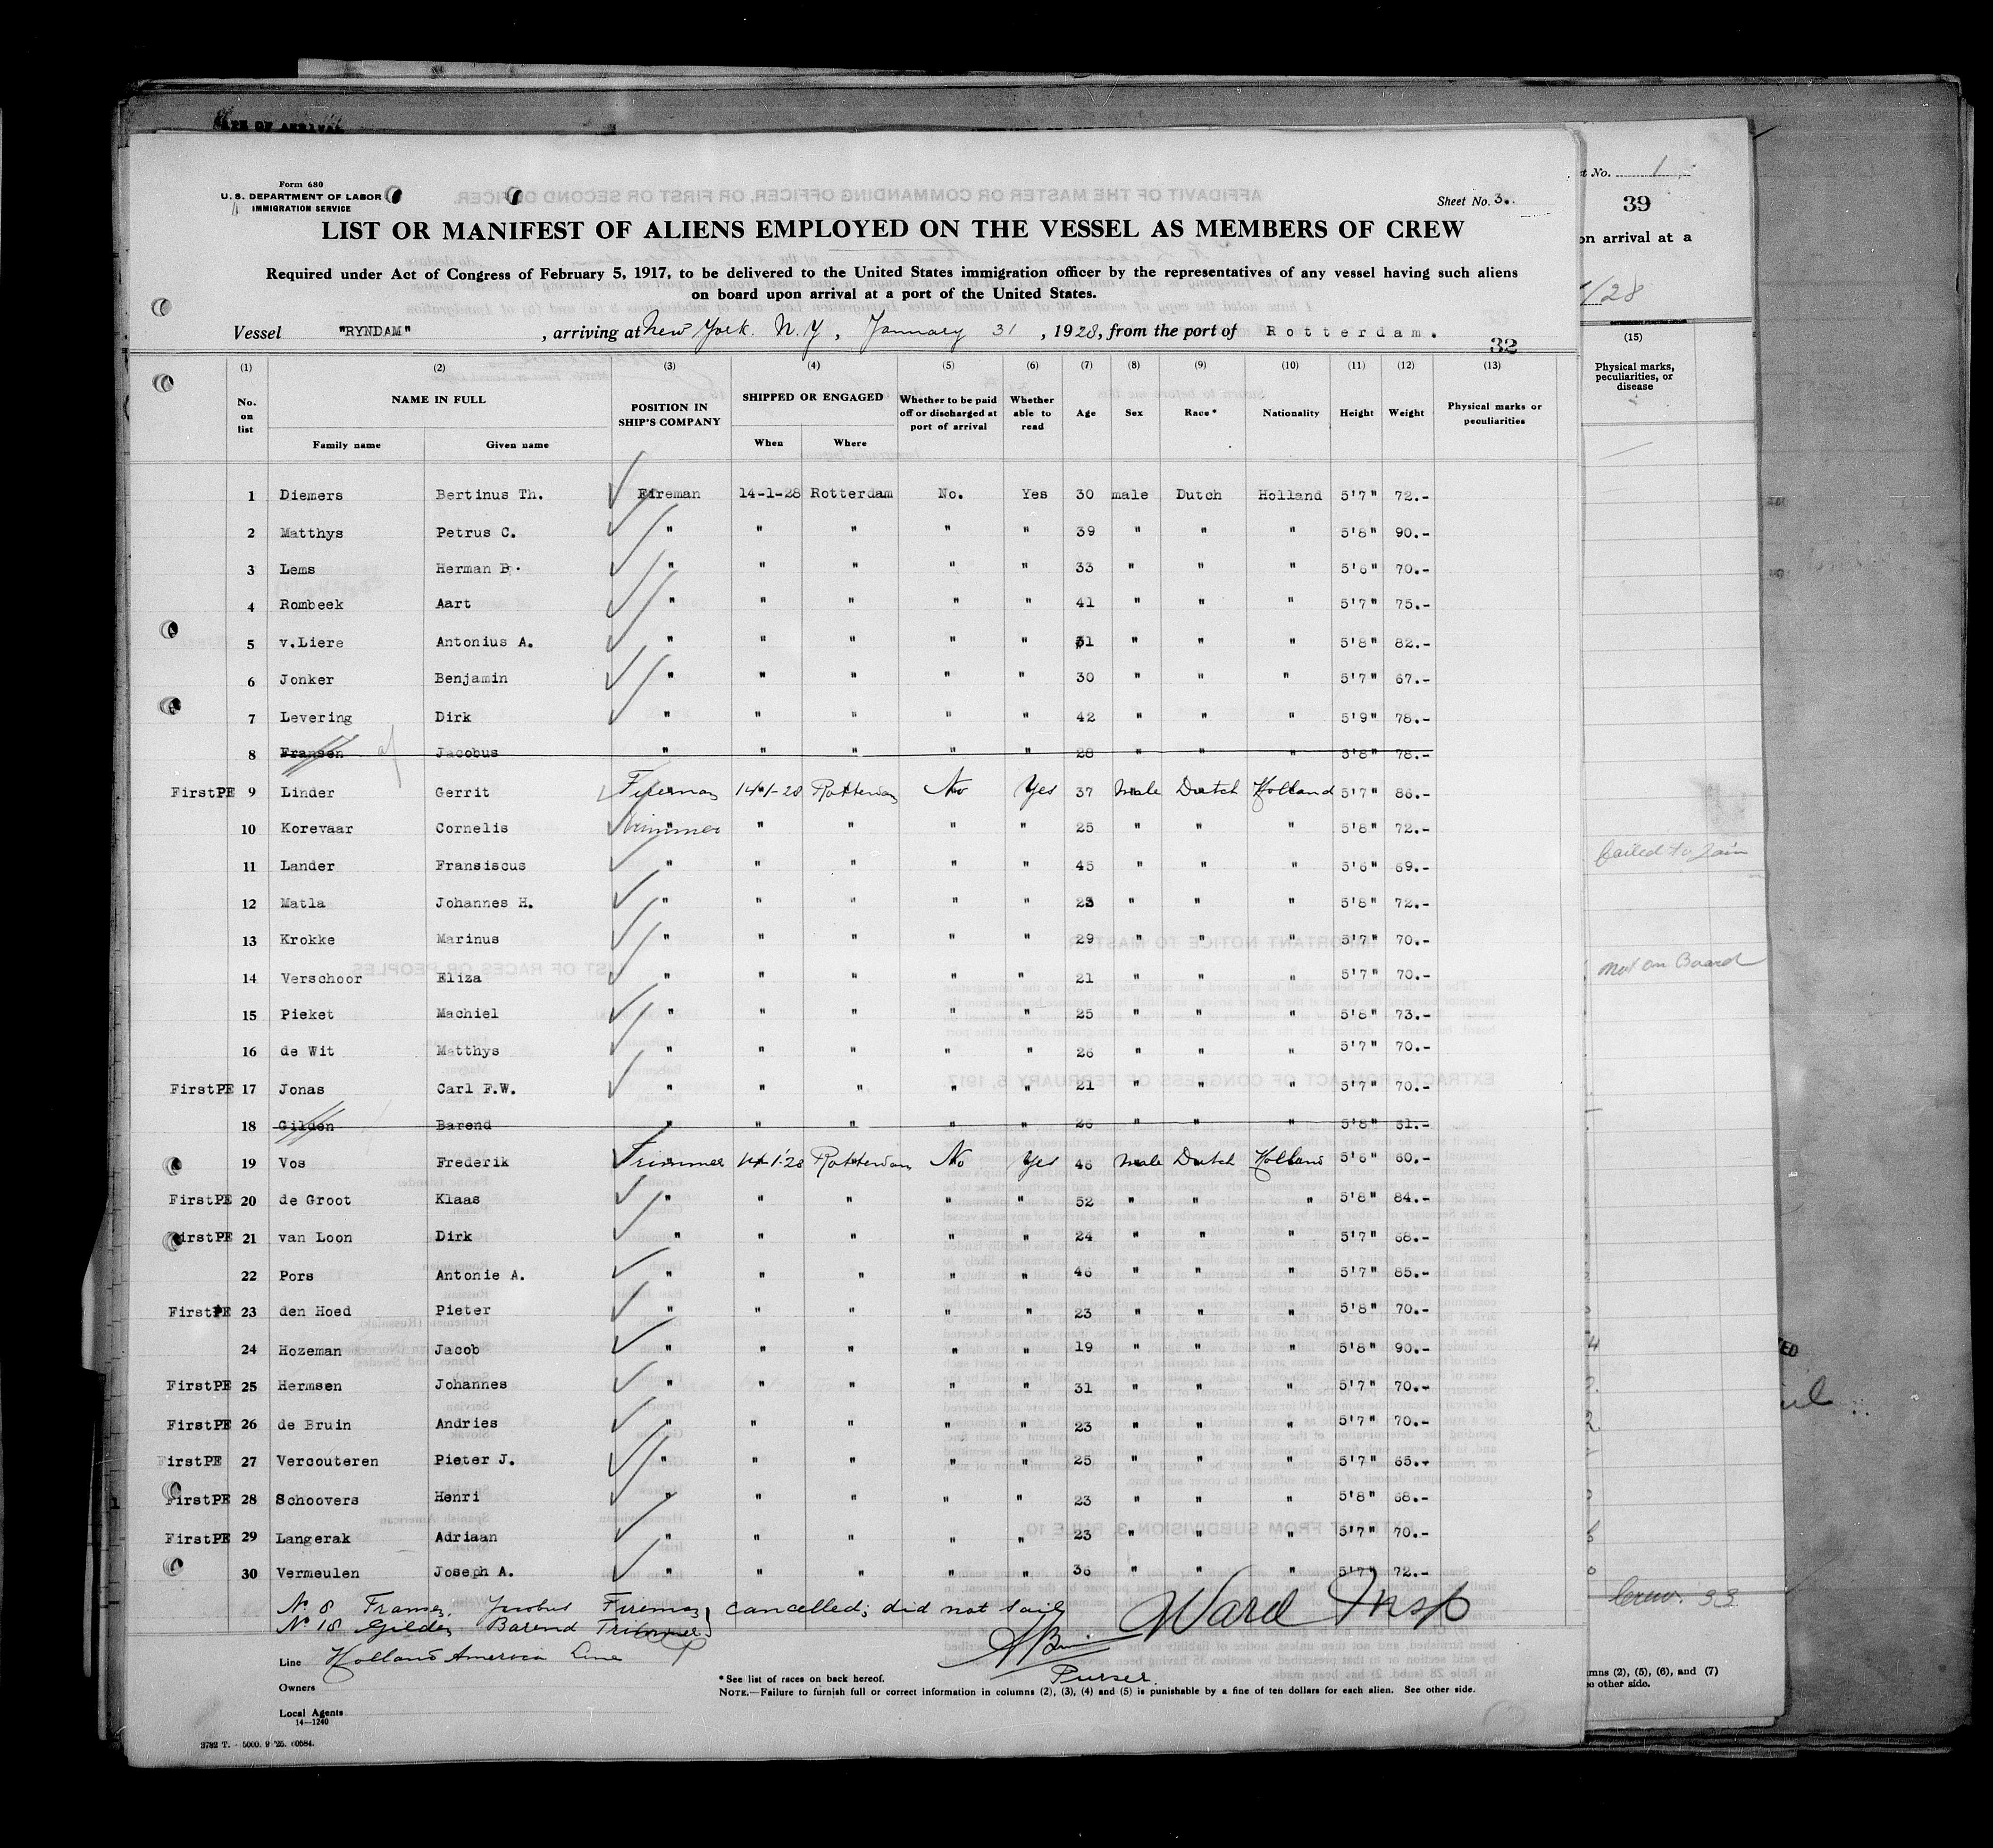 Form 680
U. S. DEPARTMENT OF LABOR
IMMIGRATION SERVICE
Sheet No. 3.
LIST OR MANIFEST OF ALIENS EMPLOYED ON THE VESSEL AS MEMBERS OF CREW
Required under Act of Congress of February 5, 1917, to be delivered to the United States immigration officer by the representatives of any vessel having such aliens
on board upon arrival at a port of the United States.
Vessel "RYNDAM", arriving at New York. N.Y, January 31, 1928, from the port of Rotterdam.
32
(1) (2) (3) (4) (5) (6) (7) (8) (9) (10) (11) (12) (13)
No. on list NAME IN FULL Family name Given name POSITION IN SHIP'S COMPANY SHIPPED OR ENGAGED When Where Whether to be paid off or discharged at port of arrival Whether able to read Age Sex Race* Nationality Height Weight Physical marks or peculiarities
1 Diemers Bertinus Th. Fireman 14-1-28 Rotterdam No. Yes 30 male Dutch Holland 5'7" 72.-
2 Matthys Petrus C. " " " " " 39 " " " 5'8" 90.-
3 Lems Herman " " " " " 33 " " " 5'6" 70.-
4 Rombeek Aart " " " " " 41 " " " 5'7" 75.-
5 v.Liere Antonius A. " " " " " 31 " " " 5'8" 82.-
6 Jonker Benjamin " " " " " 30 " " " 5'7" 67.-
7 Levering Dirk " " " " " 42 " " " 5'9" 78.-
8 Fransen Jacobus " " " " " 28 " " " 5'8" 78.-
FirstPE 9 Linder Gerrit Fireman 14-1-28 Rotterdam No Yes 37 Male Dutch Holland 5'7" 86.-
10 Korevaar Cornelis Trimmer " " " " 25 " " " 5'8" 72.-
11 Lander Fransiscus " " " " " 45 " " " 5'6" 69.-
12 Matla Johannes H. " " " " " " " " 5'8" 72.-
13 Krokke Marinus " " " " " 29 " " " 5'7" 70.-
14 Verschoor Eliza " " " " " 21 " " " 5'7" 70.-
15 Pieket Machiel " " " " " 25 " " " 5'8" 73.-
16 de Wit Matthys " " " " " 26 " " " 5'7" 70.-
FirstPE 17 Jonas Carl F.W. " " " " " 21 " " " 5'7" 70.-
18 Gilden Barend " " " " " 26 " " " 5'8" 81.-
19 Vos Frederik Trimmer 14-1-28 Rotterdam No Yes 46 Male Dutch Holland 5'6" 60.-
FirstPE 20 de Groot Klaas " " " " " 52 " " " 5'8" 84.-
FirstPE 21 van Loon Dirk " " " " " 24 " " " 5'7" 68.-
22 Pors Antonie A. " " " " " 46 " " " 5'7" 85.-
FirstPE 23 den Hoed Pieter " " " " " 23 " " " 5'8" 70.-
24 Hozeman Jacob " " " " " 19 " " " 5'8" 90.-
FirstPE 25 Hermsen Johannes " " " " " 31 " " " 5'7" 70.-
FirstPE 26 de Bruin Andries " " " " " 23 " " " 5'7" 70.-
FirstPE 27 Vercouteren Pieter J. " " " " " 25 " " " 5'7" 65.-
FirstPE 28 Schoovers Henri " " " " " 23 " " " 5'8" 68.-
FirstPE 29 Langerak Adriaan " " " " " 23 " " " 5'7" 70.-
30 Vermeulen Joseph A. " " " " " 36 " " " 5'7" 72.-
No 8 Fransen, Jacobus Fireman } cancelled; did not sail
No 18 Gilden Barend Trimmer
Ward Insp
Purser.
Line Holland America Line
Owners
Local Agents
14—1240
*See list of races on back hereof.
NOTE.—Failure to furnish full or correct information in columns (2), (3), (4) and (5) is punishable by a fine of ten dollars for each alien. See other side.
3782 T. - 5000. 9 '26. 60584.
t No. 1
39
on arrival at a
/28
(15)
Physical marks, peculiarities, or disease
failed to join
not on Board
Crew. 33
mns (2), (5), (6), and (7)
other side.